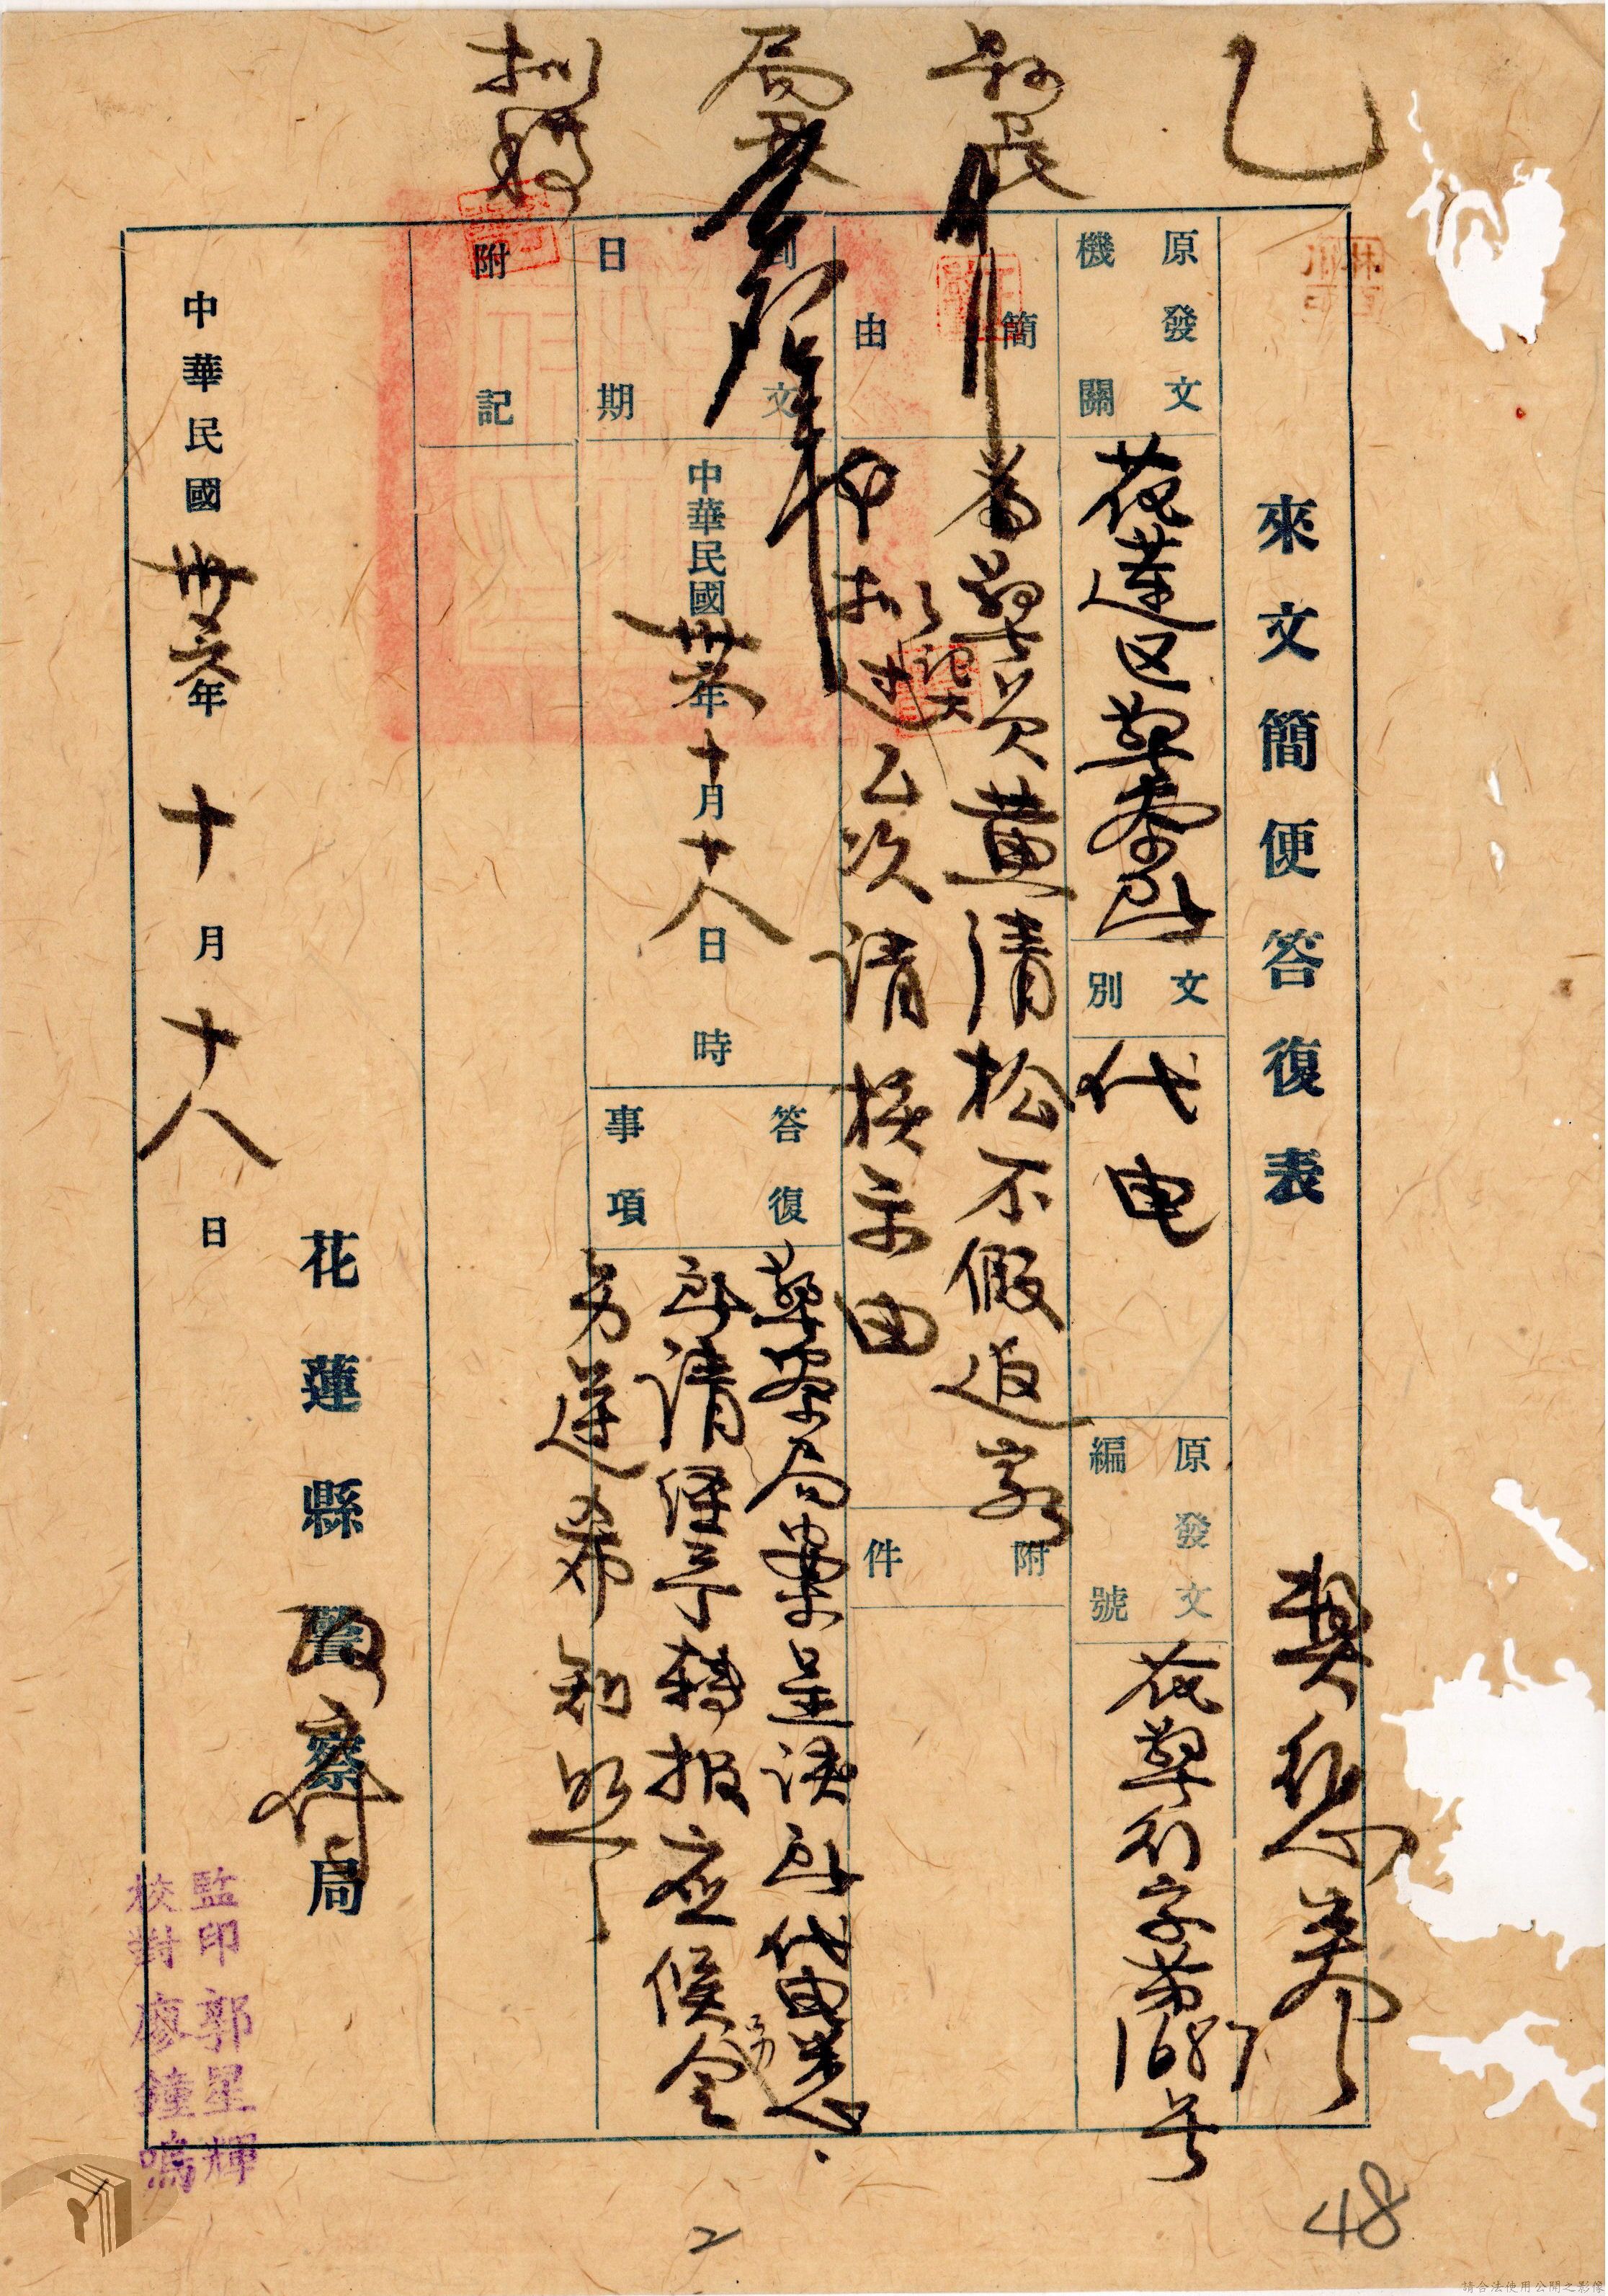 乙
縣長
局長
擬稿
來文簡便答復表
原發文機關
花蓮区警察所
文別
代电
原發文編號
花警行字第1687号
簡由
為警員黃清松不假返家
即擬記大过乙次请核示由
附件
文日期
中華民國卅六年十月十八日時
答復事項
警察局案呈該所代电悉
所请經予轉报应候令
另達希知照
附記
花蓮縣警察局
中華民國卅六年十月十八日
監印郭星輝
校對廖鐘鳴
48
2
請合法使用公開之影像